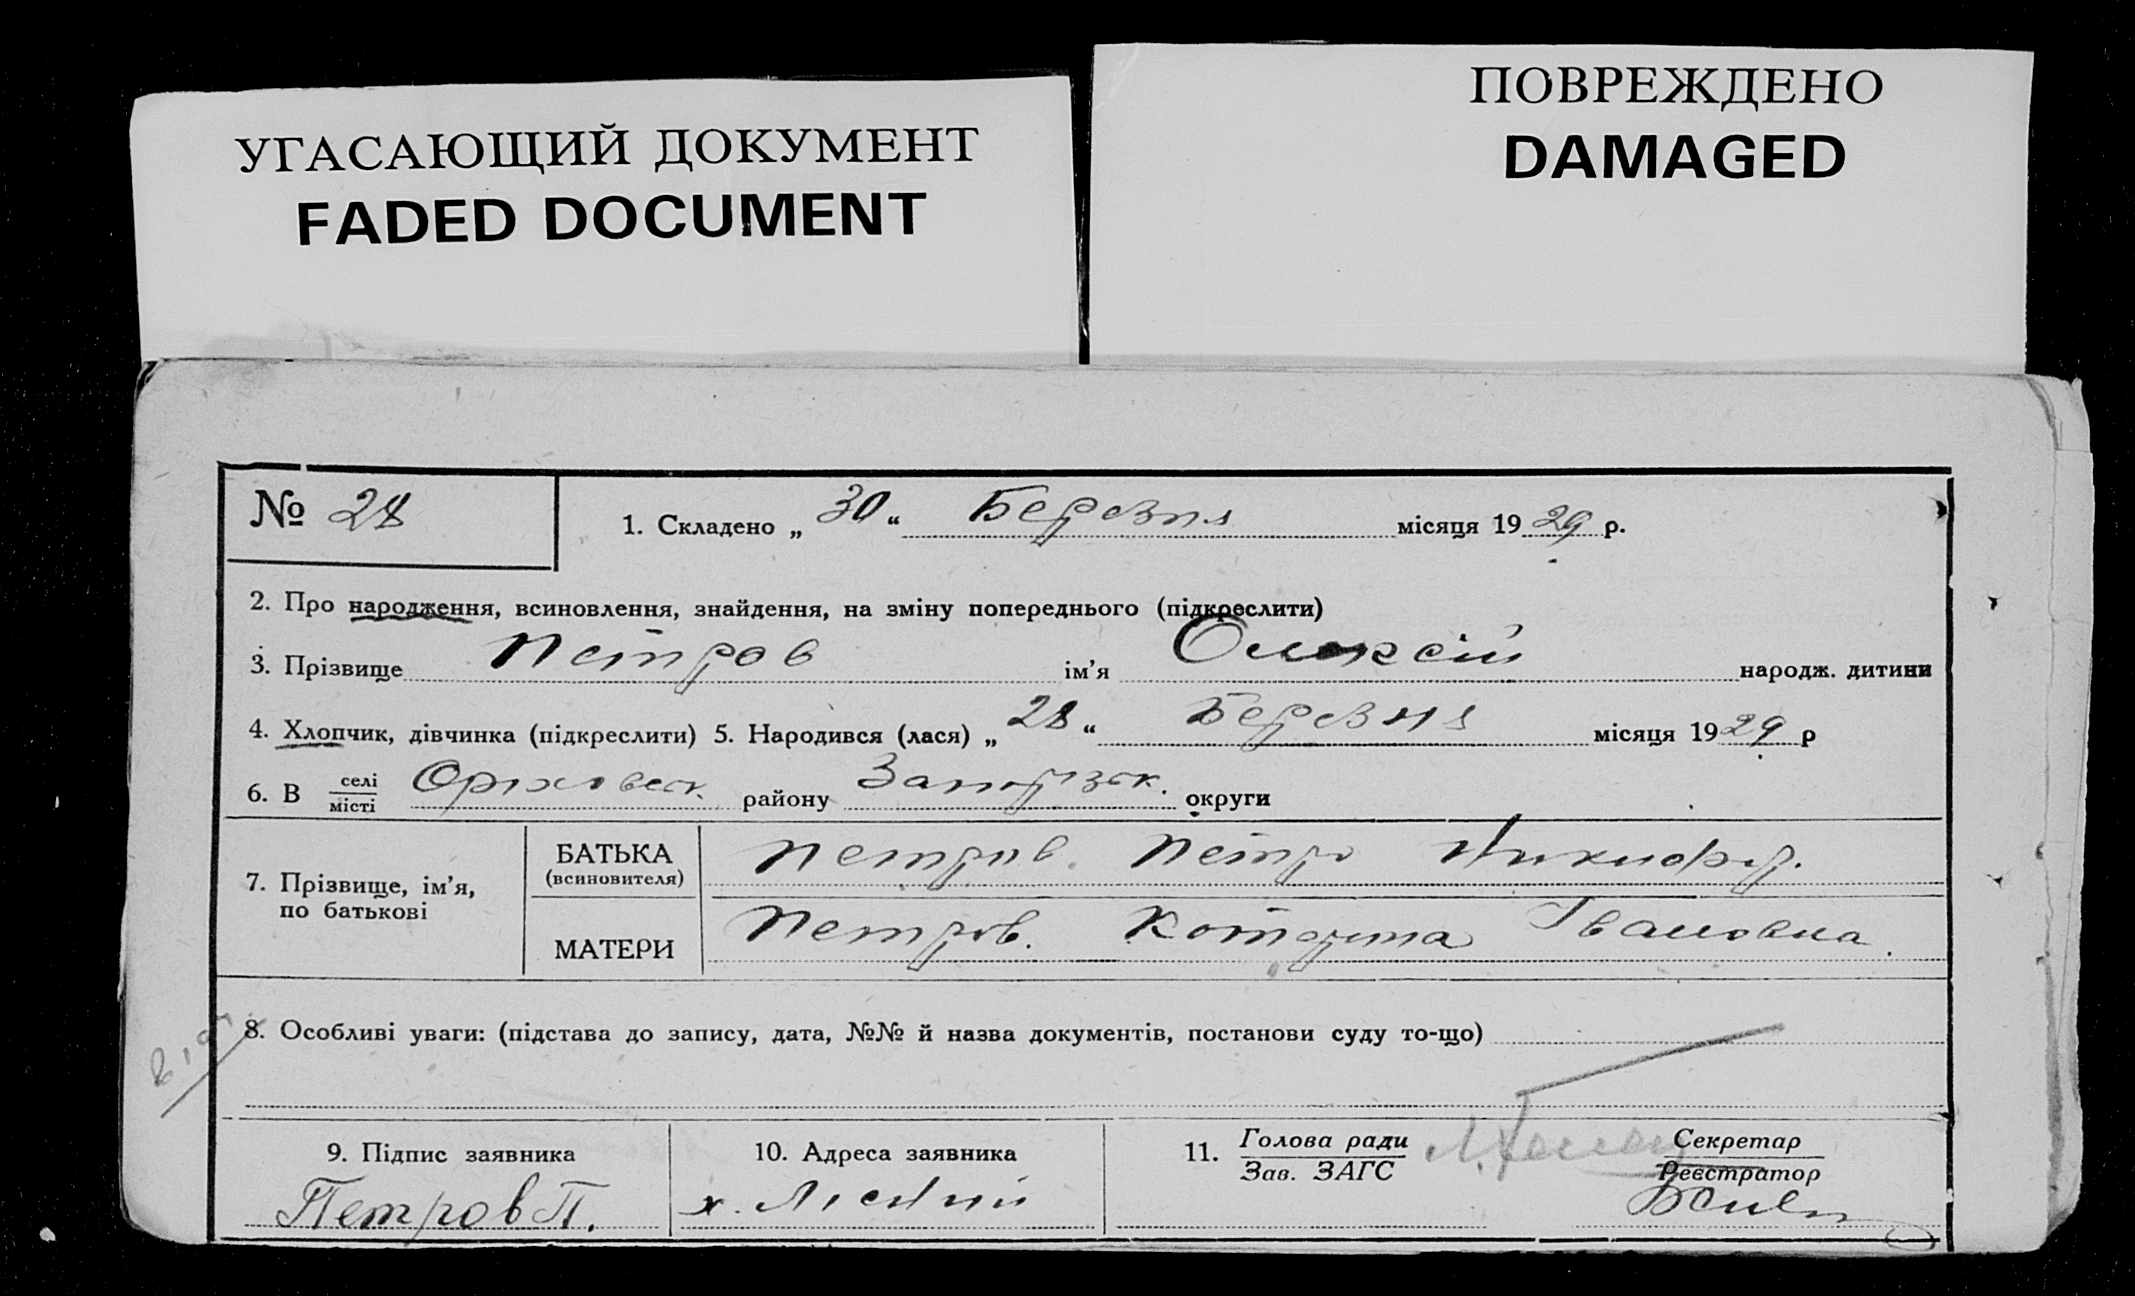 УГАСАЮЩИЙ ДОКУМЕНТ
FADED DOCUMENT
ПОВРЕЖДЕНО
DAMAGED
№ 28
1. Складено „ 30 “ Березня місяця 19 29 р.
2. Про народження, всиновлення, знайдення, на зміну попереднього (підкреслити)
3. Прізвище Петров ім’я Олексій народж. дитини
4. Хлопчик, дівчинка (підкреслити) 5. Народився (лася) „ 28 “ Березня місяця 19 29 р
6. В селі місті Оріховськ. району Запорізьк. округи
7. Прізвище, ім’я, по батькові
БАТЬКА (всиновителя) Петров Петро Никифор.
МАТЕРИ Петров. Катерина Івановна.
8. Особливі уваги: (підстава до запису, дата, №№ й назва документів, постанови суду то-що)
9. Підпис заявника
Петров П.
10. Адреса заявника
х.
11. Голова ради Зав. ЗАГС
Секретар Реєстратор